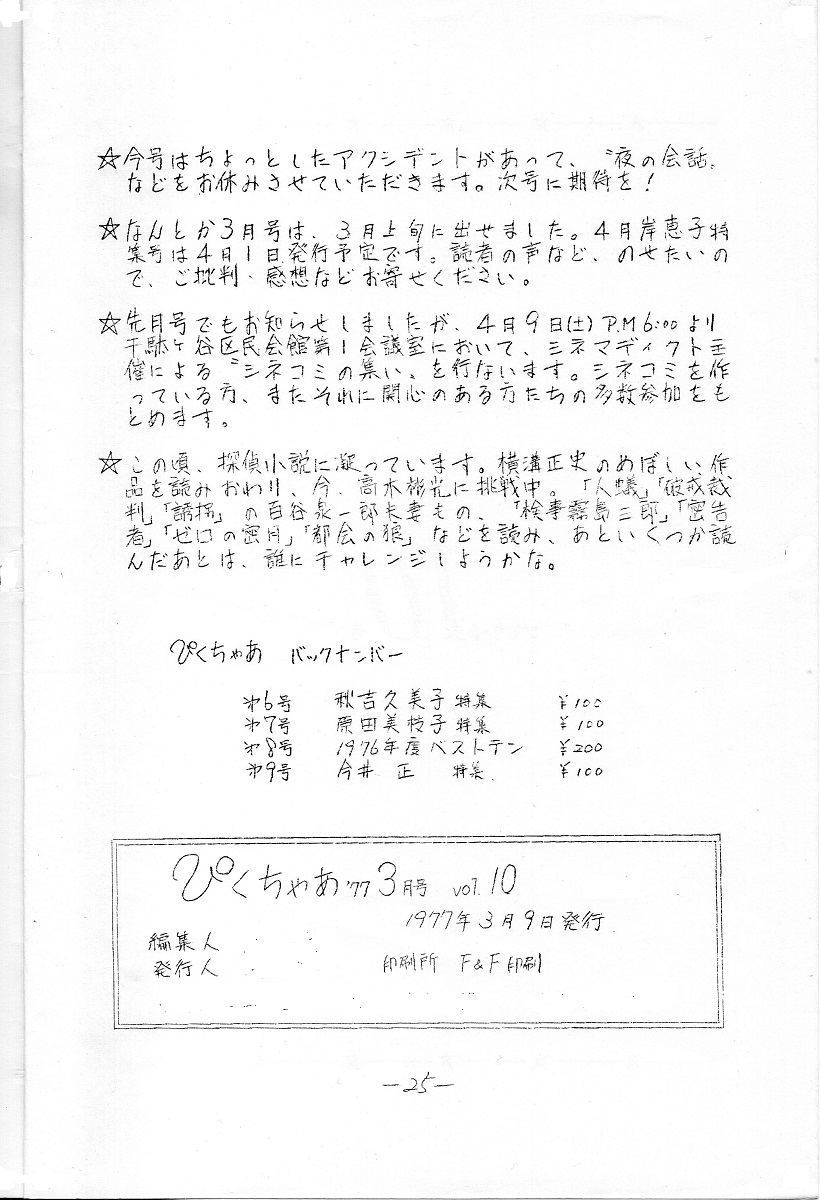 ☆今号はちょっとしたアクシデントがあって、〝夜の会話〟
などをお休みさせていただきます。次号に期待を!
☆なんとか3月号は、3月上旬に出せました。4月岸恵子特
集号は4月1日発行予定です。読者の声など、のせたいの
で、ご批判・感想などお寄せください。
☆先月号でもお知らせしましたが、4月9日(土)P.M6:00より
千駄ヶ谷区民会館第1会議室において、シネマディクト主
催による〝シネコミの集い〟を行ないます。シネコミを作
っている方、またそれに関心のある方たちの多数参加をも
とめます。
☆この頃、探偵小説に凝っています。横溝正史のめぼしい作
品を読みおわり、今、高木彬光に挑戦中。「人蟻」「破戒裁
判」「誘拐」の百谷泉一郎夫妻もの、「検事霧島三郎」「密告
者」「ゼロの蜜月」「都会の狼」などを読み、あといくつか読
んだあとは、誰にチャレンジしようかな。
ぴくちゃあ バックナンバー
第6号 秋吉久美子特集 ¥100
第7号 原田美枝子特集 ¥100
第8号 1976年度ベストテン ¥200
第9号 今井 正 特集 ¥100
ぴくちゃあ'77 3月号 vol.10
1977年3月9日発行
編集人
発行人 印刷所 F&F印刷
—25—